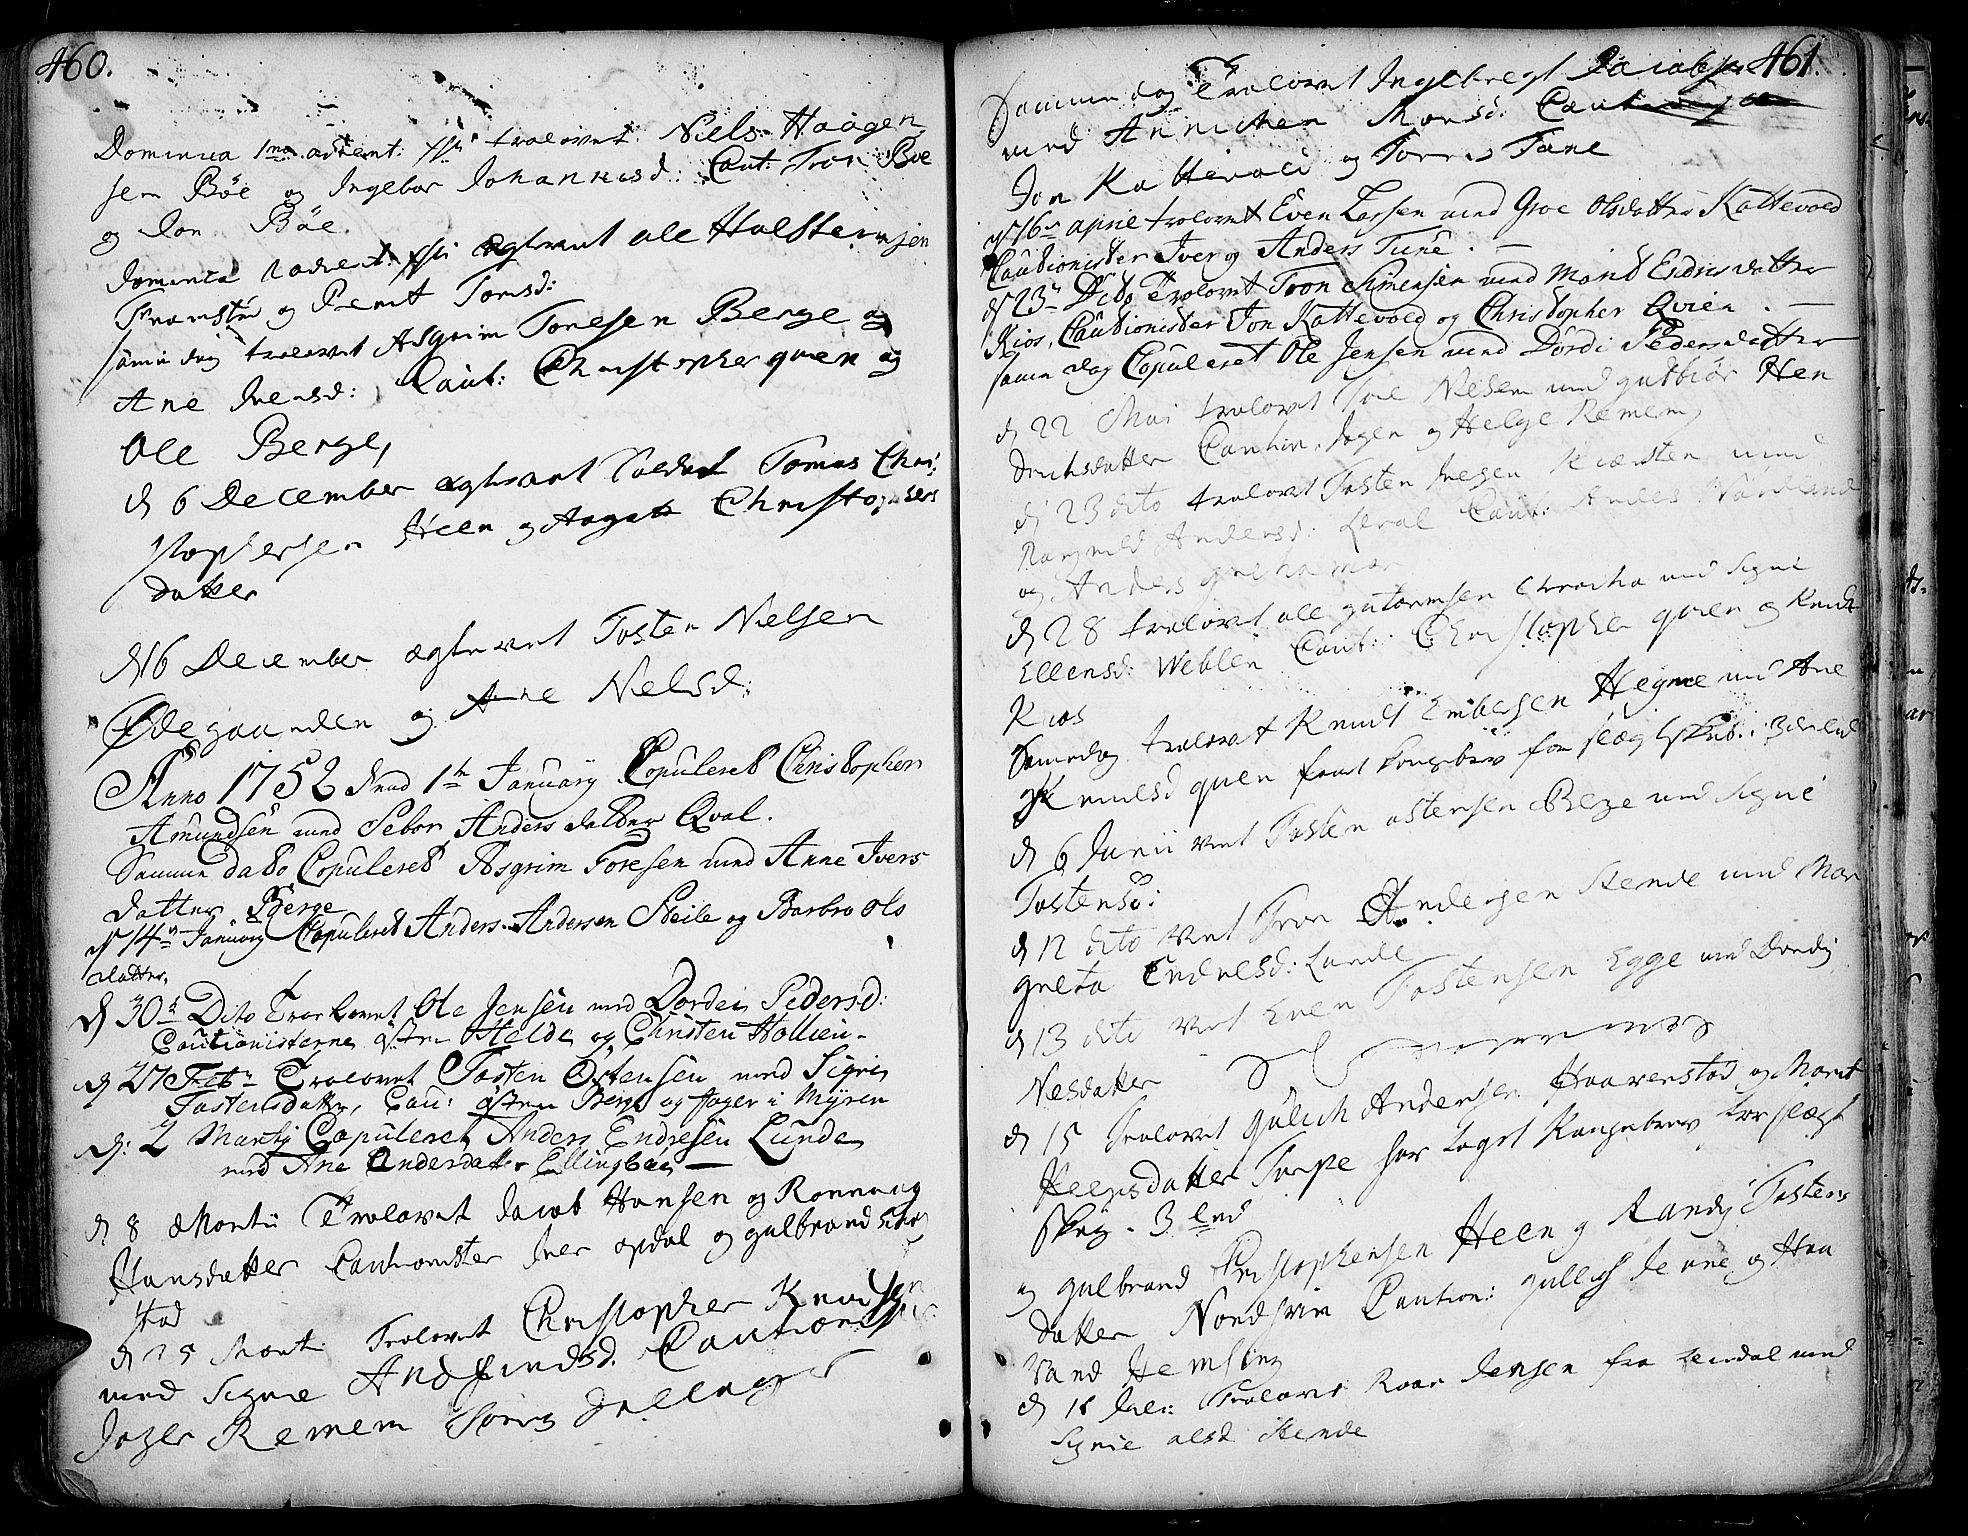 460.
Dominica 1ma advent: trolovet Niels Haagen
sen Böe og Ingebor Johannisd: Caut: Tron Böe
og Jon Böe.
Dominica 2 advent: ægtevit ole Halsteinsen
og Berit Tomisd:
samme dag trolovet Asgrim Toresen Berge og
Ane Iversd: Caut: Christopher quien og
Ole Berge,
d 6 December ægtevit Soldat Tomas Chri
stophersen Heen og Aagot Christophers
datter
d 16 December ægtevit Tosten Nielsen
Ødegaarden og Ane Nielsd:
Anno 1752 dend 1te January Copuleret Christopher
Amundsen med Sebor Anders datter Qval.
Samme dato Copuleret Asgrim Toresen med Anne Ivers
datter Berge
d 14n January Copuleret Anders Andersen Steile og Barbro Ols
datter.
d 30t Dito Trolovet Ole Jensen med Dordei Pedersd:
Cautionisterne östen Helde og Christen Hollien
d 27 Febr Trolovet Tosten Östensen med Sigri
Tostensdatter, Cau: östen Berge og Jager i Myren
d: 2 Martij Copuleret Anders Endresen Lunde
med Ane Andersdatter Ellingböe —
d 8 Martii Trolovet Jacob Hansen og Ronnaug
Hansdatter Cautionister Iver opdal og gulbrand
stad
d 25 Marti Trolovet Christopher Knudsen
med Signe Amundsd. Cautionister
Jager Remem
461.
Sammedag Trolovet Ingebregt Jacobsen
med Annichen Monsd: Caut
Jon Kattevold og Torris Tune
d 16n aprie trolovet Even Larsen med Groe Olsdatter Kattevold
Cautionister Iver og Anders Tune. —
d 23n Dito Trolovet Tron Simensen med Marit Endresdatter
Kios, Cautionister Jon Kattevold og Christopher Qvien. —
samme dag Copuleret Ole Jensen med Dördi Pedersdatter
d 22 Mai trolovet Tore Nielsen med gudbiör Hen
drichsdatter Caution: Jager og Helge Remem,
d 23 dito trolovet Tosten Iversen Kiersten med
Ragnild Andersd: Caut: Anders
og Anders
d 28 trolovet ole gutormsen med Signe
Ellensd: Weblen Caut: Christopher quien og Knut
Kios
Samedag trolovet Knudt Embersen Hegme med Ane
Knudsd quien fant Kongebrev for slægtskab: 3die led
d 6 Junii viet Tosten ostensen Berge med Signe
Tostensd:
d 12 dito viet Tron Andersen Stende med Mar
greta Endresd: Lunde
d 13 dito viet Even Tostensen Egge med Dordij
Nesdatter
d 15 Trolovet Gulich Andersen Haavenstad og Marit
datter Torpe har taget Kongebrev for slægt
skab. 3 led
og gulbrand Christophersen Heen og Randij Tostens
datter Nordsvin Caution: gullich og Haa
vand Hemsing
d 18 Juli: Trolovet Roar Jensen fra Lerdal med
Signe olsd Stende